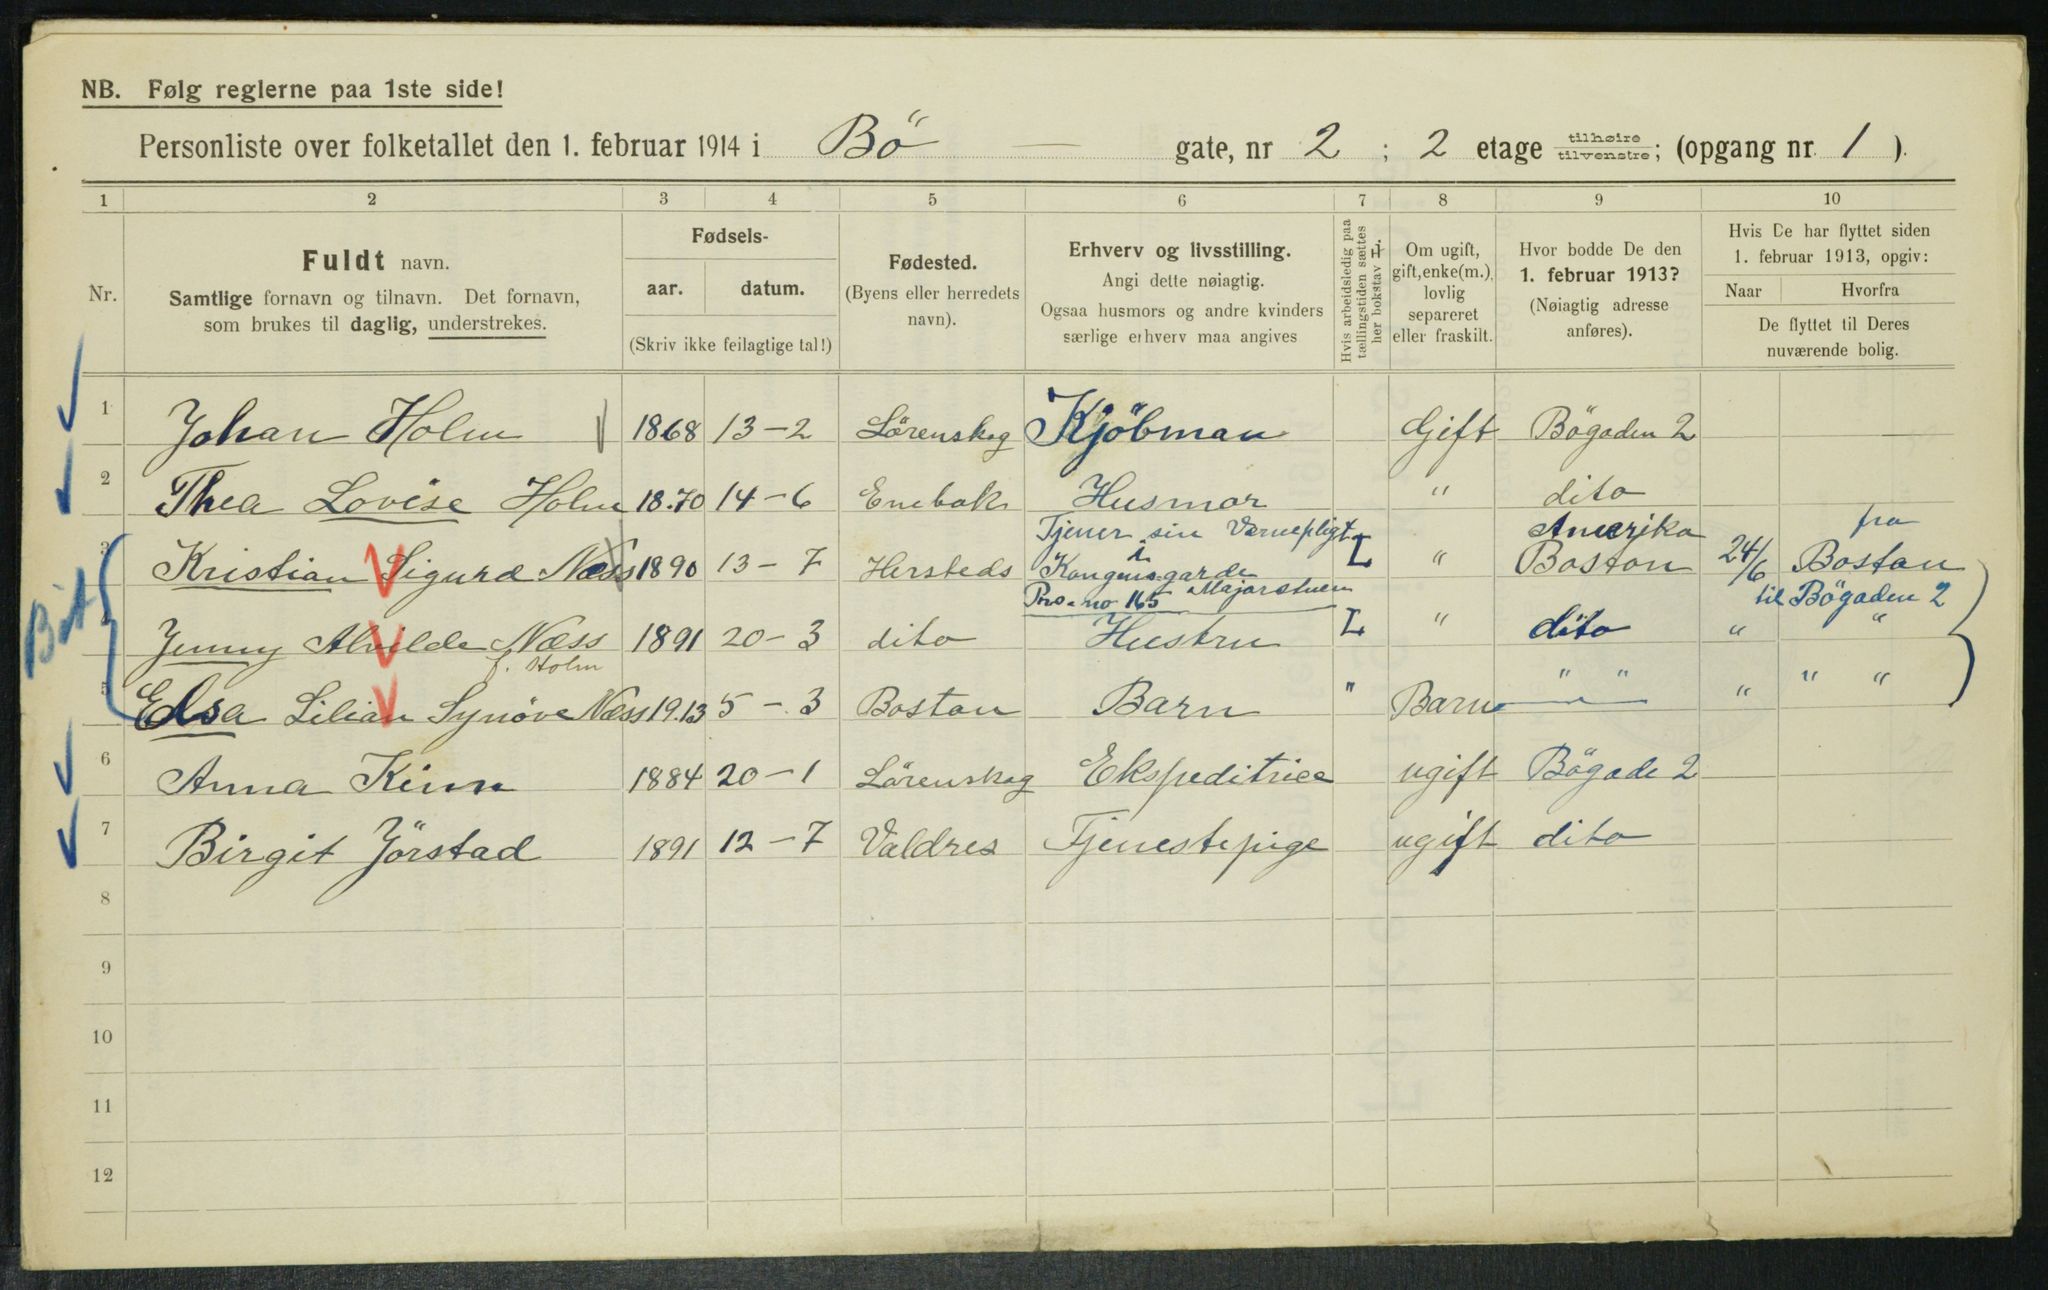 NB. Følg reglerne paa 1ste side!
Personliste over folketallet den 1. februar 1914 i Bö — gate, nr 2 ; 2 etage tilhøire tilvenstre; (opgang nr. 1 ).
1 2 3 4 5 6 7 8 9 10
Nr.
Fuldt navn.
Samtlige fornavn og tilnavn. Det fornavn,
som brukes til daglig, understrekes.
Fødsels-
aar. datum.
(Skriv ikke feilagtige tal!)
Fødested.
(Byens eller herredets
navn).
Erhverv og livsstilling.
Angi dette nøiagtig.
Ogsaa husmors og andre kvinders
særlige erhverv maa angives
Hvis arbeidsledig paa
tællingstiden sættes
her bokstav L.
Om ugift,
gift, enke(m.),
lovlig
separeret
eller fraskilt.
Hvor bodde De den
1. februar 1913?
(Nøiagtig adresse
anføres).
Hvis De har flyttet siden
1. februar 1913, opgiv:
Naar Hvorfra
De flyttet til Deres
nuværende bolig.
1 Johan Holm 1868 13-2 Lörenskog Kjöbman Gift Bögaden 2
2 Thea Lovise Holm 18.70 14-6 Enebak Husmor " dito
Tjener sin Værnepligt Amerika fra
3 Kristian Sigurd Næss 1890 13-7 Hersteds i Kongensgarde L " Boston 24/6 Boston
No 165 Majorstuen til Bögaden 2
4 Jenny Alvilde Næss 1891 20-3 dito Hustru L " dito " "
f. Holm
5 Elsa Lilian Synöve Næss 19.13 5-3 Boston Barn " Barn " " " " "
6 Anna Kinn 1884 20-1 Lörenskog Ekspeditrice ugift Bögade 2
7 Birgit Jörstad 1891 12-7 Valdres Tjenestepige ugift dito
8
9
10
11
12